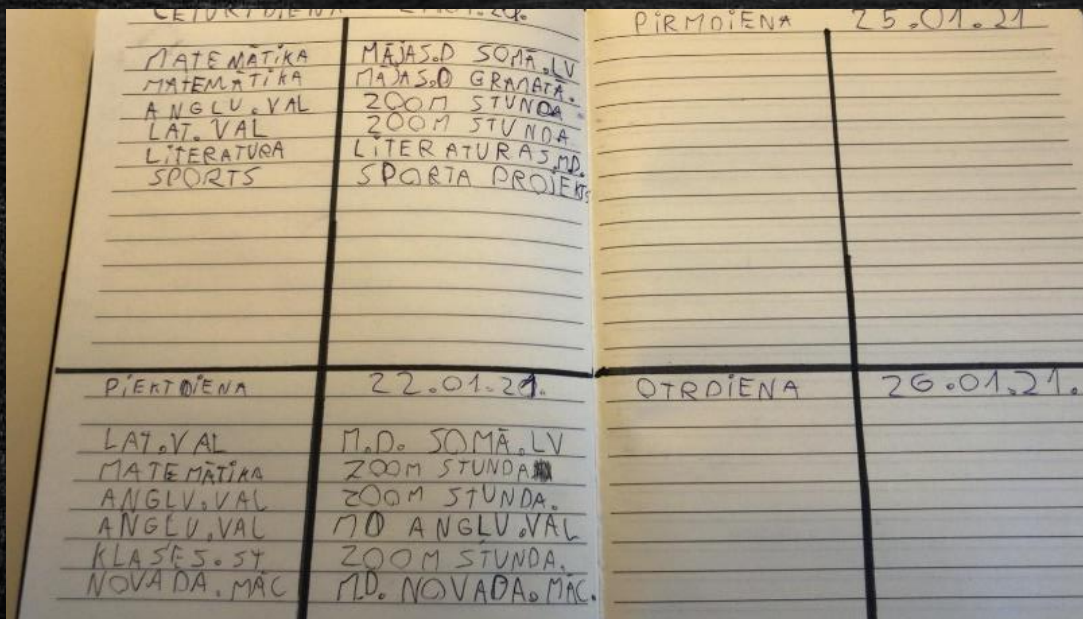 CETURTDIENA 21.01.21.
MATEMĀTIKA MĀJAS.D SOMĀ.LV
MATEMĀTIKA MĀJAS.D GRAMATĀ.
ANGLU.VAL ZOOM STUNDA.
LAT. VAL ZOOM STUNDA
LITERATURA LITERATURAS MD.
SPORTS SPORTA PROJEKTS
PIEKTDIENA 22.01.21.
LAT.VAL M.D. SOMĀ.LV
MATEMĀTIKA ZOOM STUNDA
ANGLU.VAL ZOOM STUNDA.
ANGLU.VAL MD ANGLU.VAL
KLASES.ST ZOOM STUNDA.
NOVADA.MĀC M.D. NOVADA.MĀC.
PIRMDIENA 25.01.21
OTRDIENA 26.01.21.